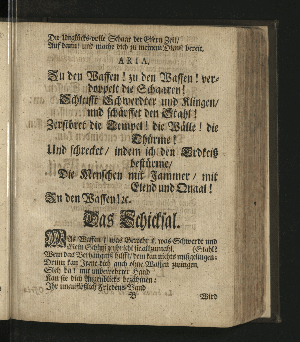 Die Unglücks-volle Schaar der Eisern Zeit/
Auf dann! und mache dich zu meinem Dienst bereit.
ARIA.
Zu den Waffen! zu den Waffen! ver-
doppelt die Schaaren!
Schleifft Schwerdter und Klingen/
und schärffet den Stahl!
Zerstöret die Tempel! die Wälle! die
Thürme!
Und schrecket/ indem ich den Erdkreiß
bestürme/
Die Menschen mit Jammer/ mit
Elend und Quaal!
Zu den Waffen! ꝛc.
Das Schicksal.
WAs Waffen! was Gewehr! was Schwerdt und
(Stahl?
Mein Schluß zerbricht sie allzumahl.
Wenn das Verhängnis hilfft/ dem kan nichts mißgelingen:
Drum kan Irene dich auch ohne Waffen zwingen.
Sieh da! mit unbewehrter Hand
Kan sie dich Augenblicks bezähmen:
Ihr unauflößlich Friedens-Band
B
Wird